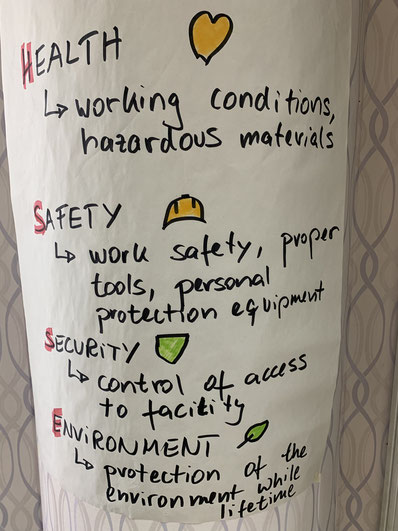 HEALTH
↳ working conditions,
hazardous materials
SAFETY
↳ work safety, proper
tools, personal
protection equipment
SECURITY
↳ control of access
to facility
ENViRONMENT
↳ protection of the
environment while
lifetime